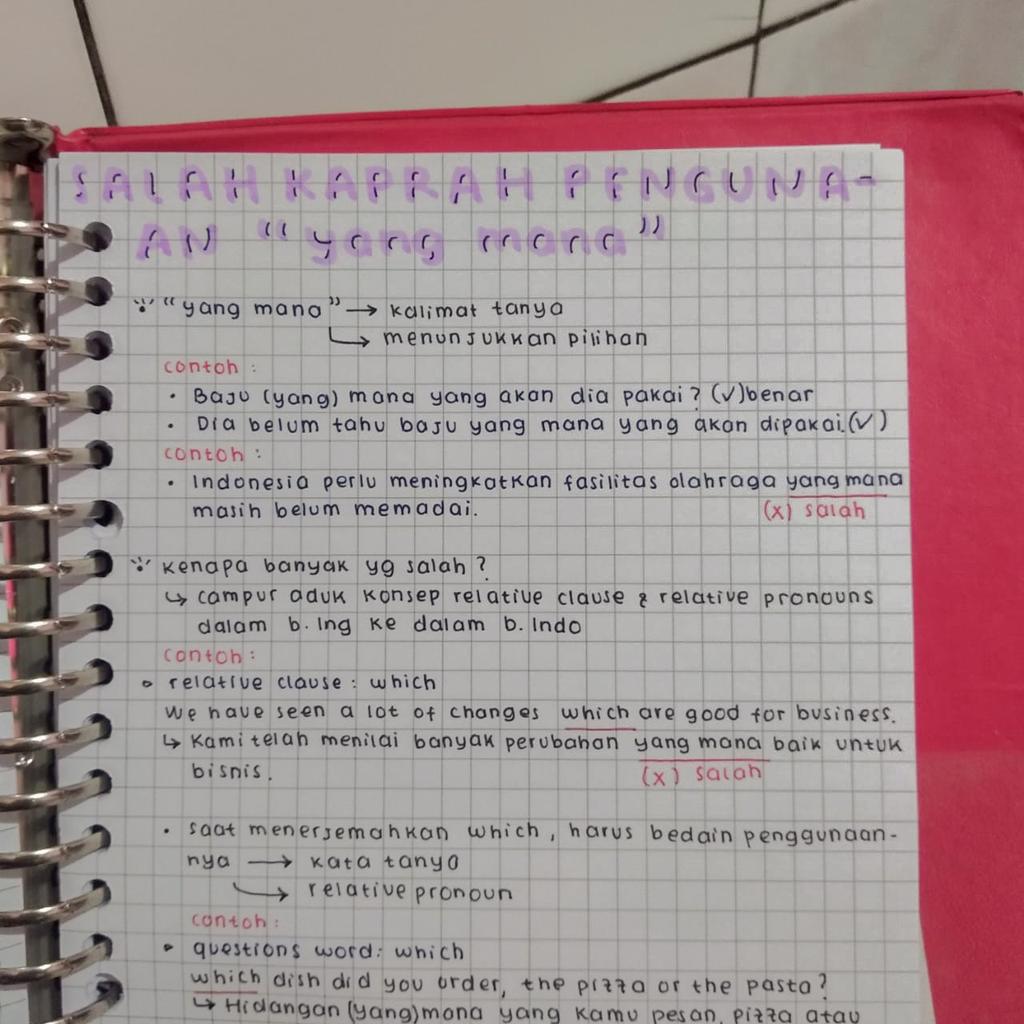 SALAH KAPRAH PENGUNA-
AN "yang mana"
"yang mana" → kalimat tanya
↳ menunjukkan pilihan
contoh :
• Baju (yang) mana yang akan dia pakai? (✓) benar
• Dia belum tahu baju yang mana yang akan dipakai. (✓)
contoh :
• Indonesia perlu meningkatkan fasilitas olahraga yang mana
masih belum memadai. (x) salah
kenapa banyak yg salah ?
↳ campur aduk konsep relative clause & relative pronouns
dalam b. Ing ke dalam b. Indo
contoh :
• relative clause : which
We have seen a lot of changes which are good for business.
↳ Kami telah menilai banyak perubahan yang mana baik untuk
bisnis. (x) salah
• saat menerjemahkan which, harus bedain penggunaan-
nya → kata tanya
↳ relative pronoun
contoh :
• questions word: which
which dish did you order, the pizza or the pasta?
↳ Hidangan (yang) mana yang kamu pesan, pizza atau